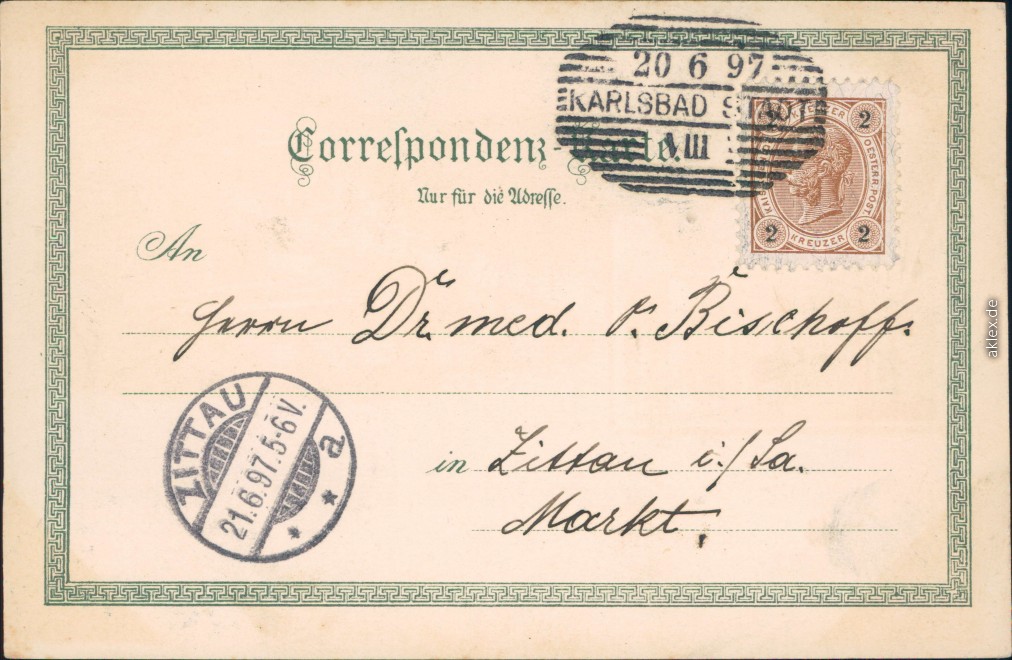 20 6 97
KARLSBAD STADT
VIII
Correspondenz-Karte.
Nur für die Adresse.
2 KREUZER 2
OESTERR. POST.
2 KREUZER 2
An
Herrn Dr. med. v. Bischoff.
ZITTAU
21.6.97.5-6V.
a
in Zittau i./Sa.
Markt,
aklex.de